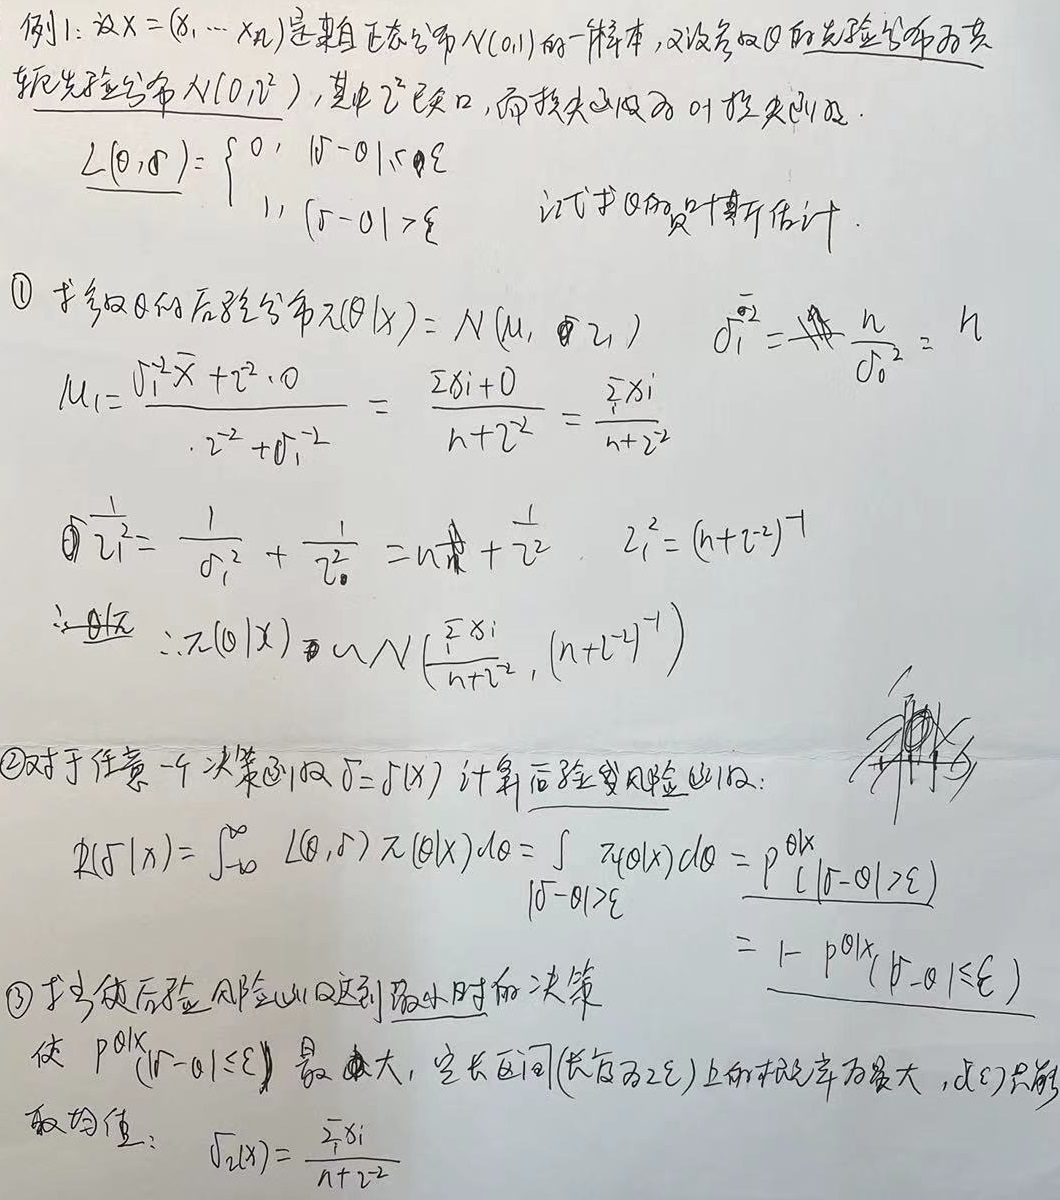 例1: 设X=(x₁ … xₙ)是来自正态分布N(0,1)的一样本,又设参数θ的先验分布为共
轭先验分布N(0,τ²),其中τ²已知,而损失函数为0-1损失函数.
L(θ,δ)= { 0, |δ-θ|≤ε
1, |δ-θ|>ε
试求θ的贝叶斯估计.
① 求参数θ的后验分布π(θ|x)= N(μ₁, τ₁) σ₁⁻² = n/σ₀² = n
μ₁= (σ₁⁻²x̄+τ⁻²·0)/(τ⁻²+σ₁⁻²) = (Σxi+0)/(n+τ⁻²) = Σxi/(n+τ⁻²)
1/τ₁² = 1/σ₁² + 1/τ² = n + 1/τ² . τ₁²=(n+τ⁻²)⁻¹
∴π(θ|x) ~ N(Σxi/(n+τ⁻²), (n+τ⁻²)⁻¹)
②对于任意一个决策函数δ=δ(x) 计算后验风险函数:
R(δ|x)= ∫_{-∞}^{∞} L(θ,δ) π(θ|x)dθ = ∫_{|δ-θ|>ε} π(θ|x)dθ = P^{θ|x}(|δ-θ|>ε)
= 1- P^{θ|x}(|δ-θ|≤ε)
③求当使后验风险函数达到最小时的决策
使 P^{θ|x}(|δ-θ|≤ε) 最大, 定长区间(长度为2ε)上的概率为最大,δ(x)只能
取均值: δ₂(x)= Σxi/(n+τ⁻²)